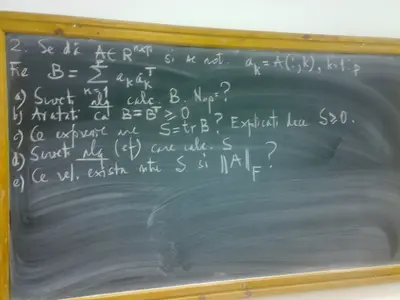 2. Se dă A ∈ R^{n×p} și se not. a_k = A(:,k), k=1:p
Fie B = ∑_{k=1}^{p} a_k a_k^T
a) Scrieți alg calc. B. N_op=?
b) Arătați că B = B^T ≥ 0
c) Ce expresie are S = tr B? Explicați dece S ≥ 0.
d) Scrieți alg (ef) care calc. S
e) Ce rel. există între S și ||A||_F ?